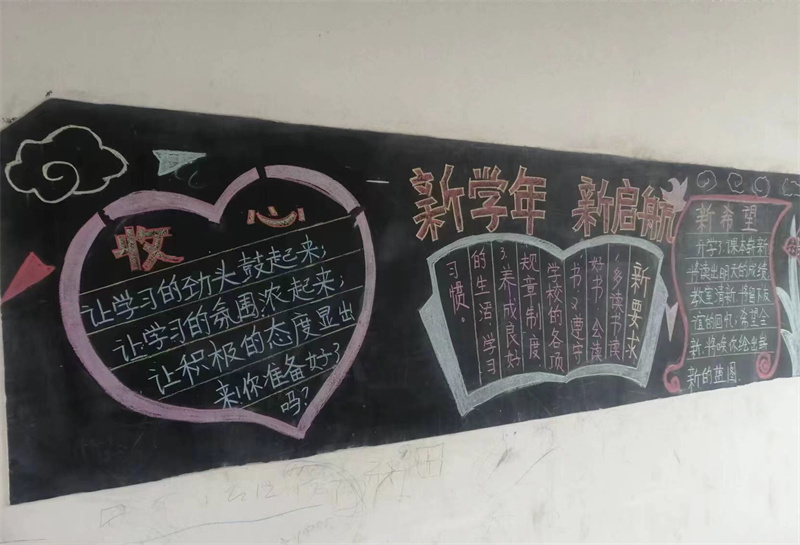 收心
让学习的劲头鼓起来;
让学习的氛围浓起来;
让积极的态度显出
来!你准备好了
吗?
新学年 新启航
新要求
1.多读书读
好书、会读
书。2.遵守
学校的各项
规章制度
3.养成良好
的生活、学习
习惯。
新希望
课本崭新
书读出明天的成绩,
教室清新,书留下友
谊的回忆,希望全
新,将唤你绘出崭
新的蓝图